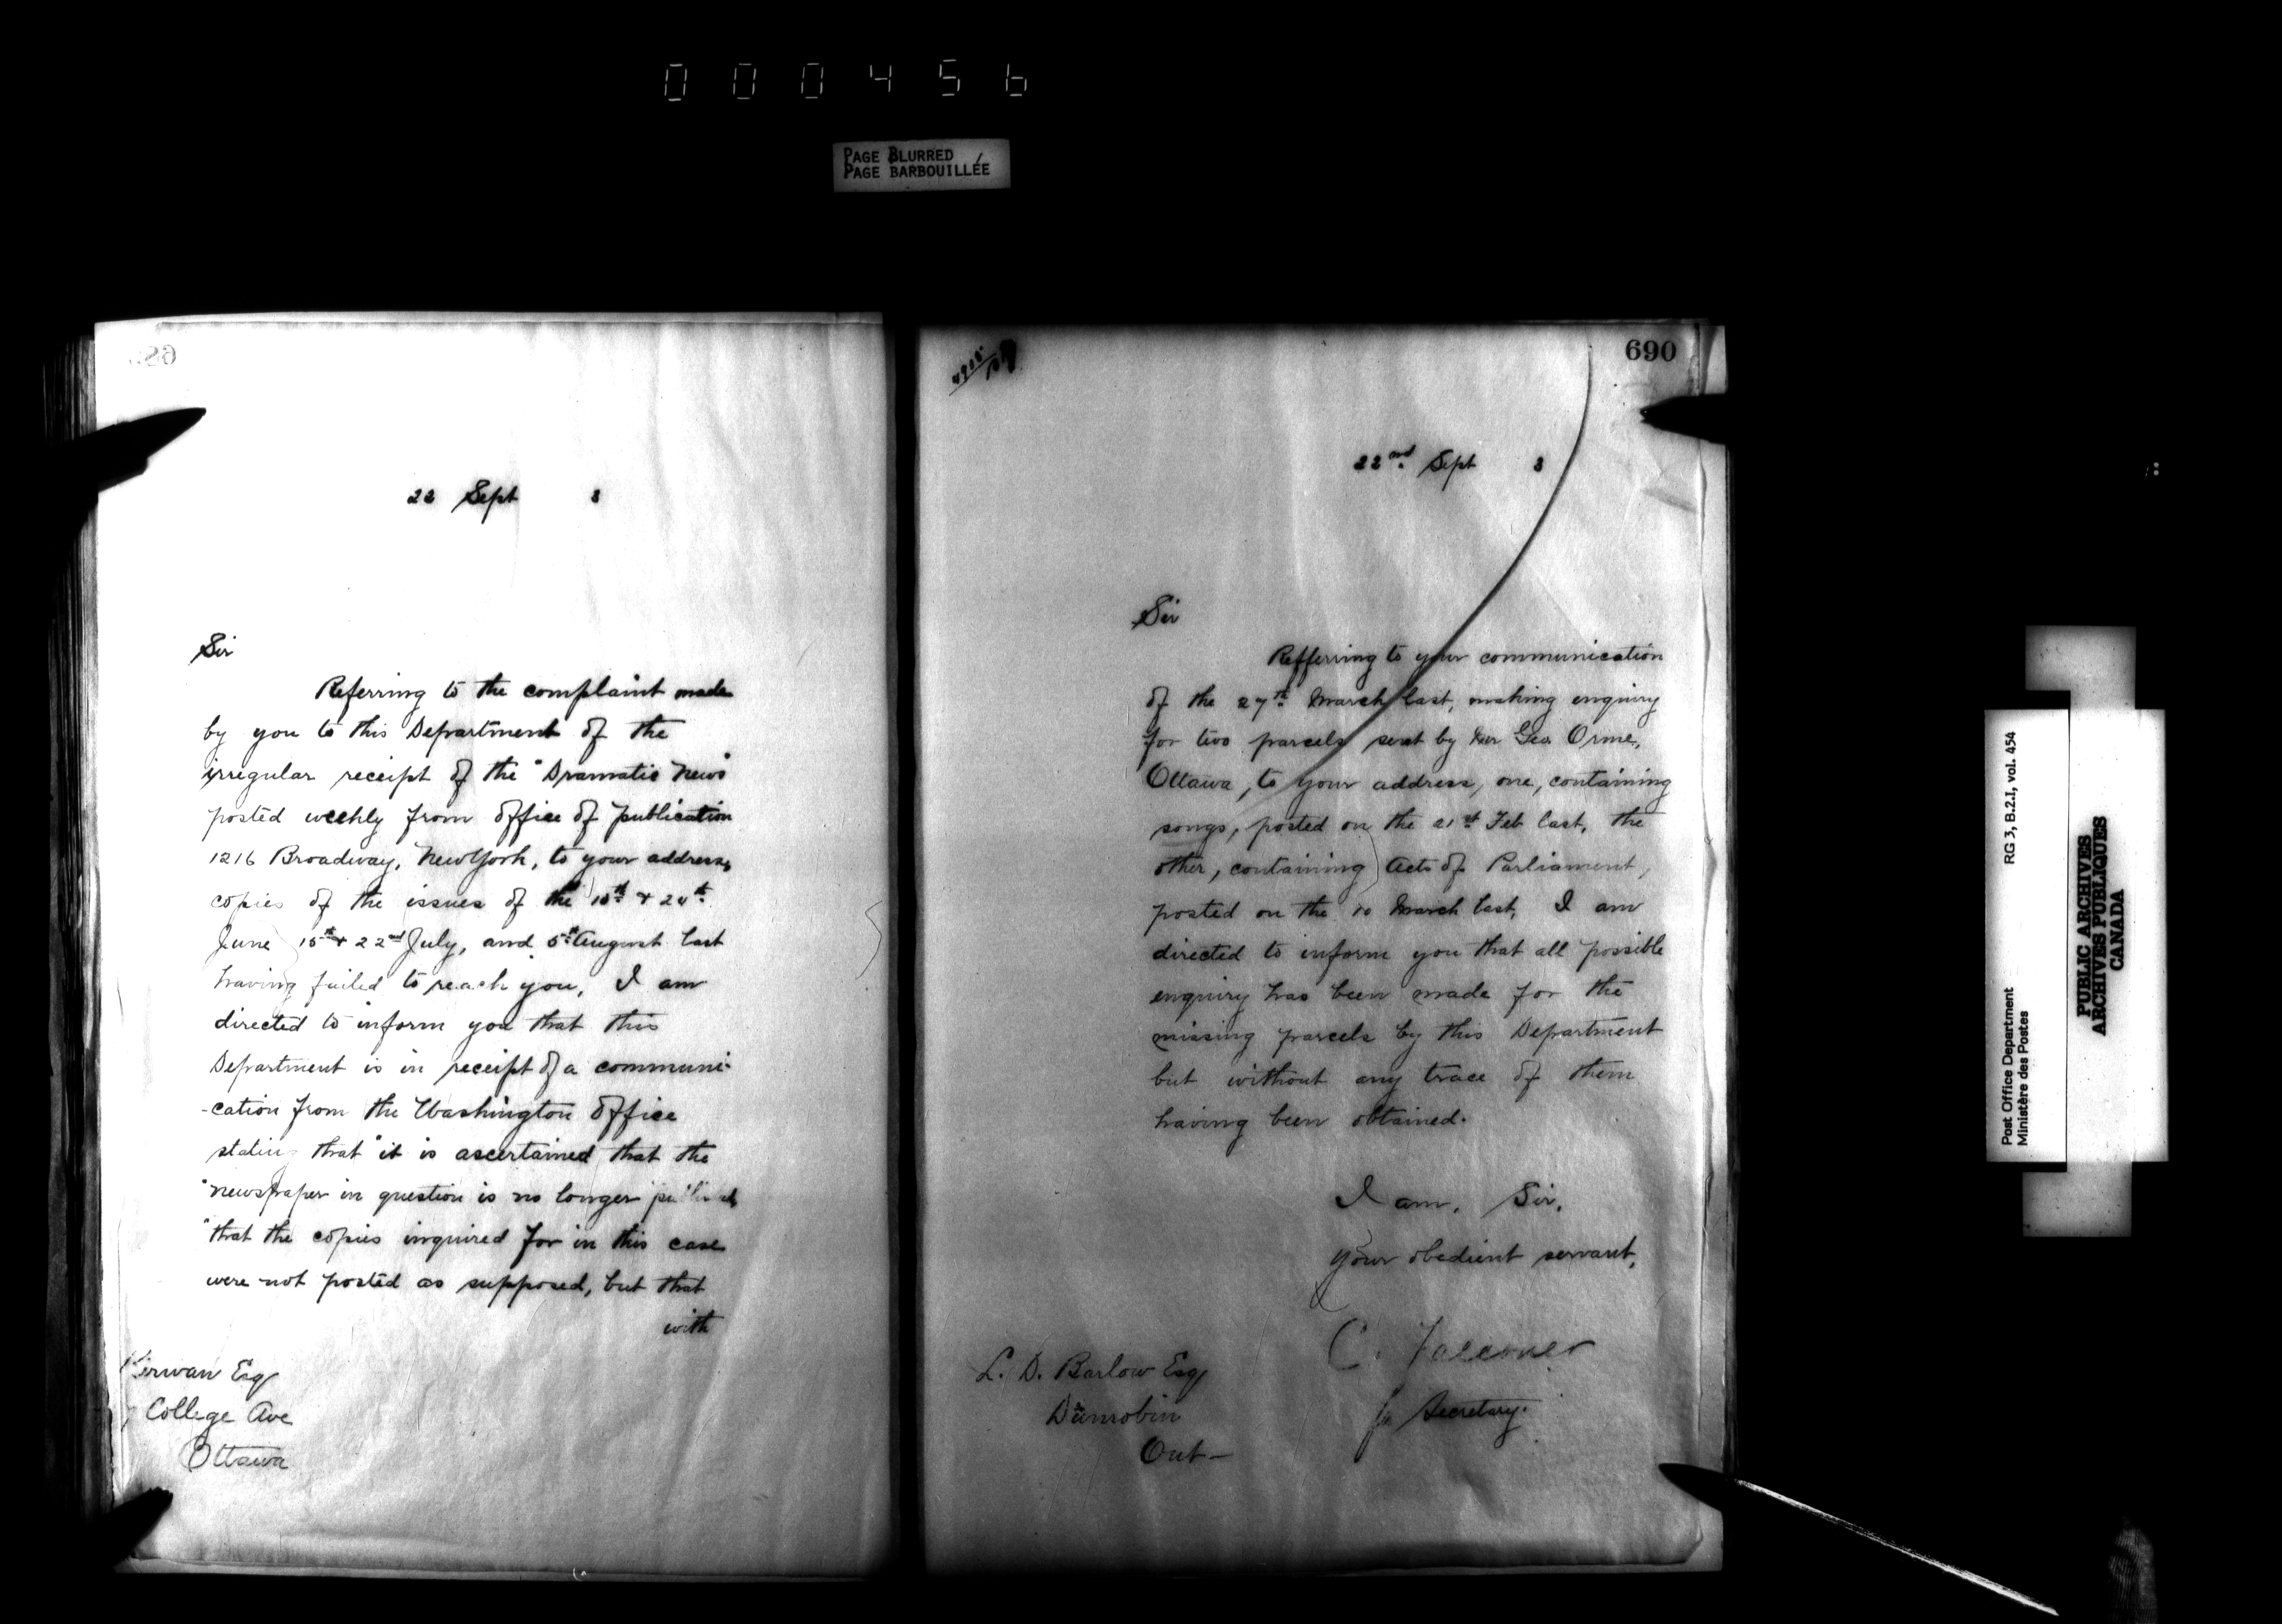 000456
PAGE BLURRED
PAGE BARBOUILLÉE
22 Sept 3
Sir
Referring to the complaint made
by you to this Department of the
irregular receipt of the "Dramatic News"
posted weekly from office of publication
1216 Broadway, New York, to your address,
copies of the issues of the 10th & 24th
June 15th & 22nd July, and 5th August last
having failed to reach you, I am
directed to inform you that this
Department is in receipt of a communi-
-cation from the Washington Office
stating that "it is ascertained that the
"newspaper in question is no longer
"that the copies inquired for in this case
were not posted as supposed, but that
with
Kirwan Esq
College Ave
Ottawa
690
22nd Sept 3
Sir
Refferring to your communication
of the 27th March last, making enquiry
for two parcels sent by Mr Geo. Orme,
Ottawa, to your address, one, containing
songs, posted on the 21st Feb last, the
other, containing Acts of Parliament,
posted on the 10 March last, I am
directed to inform you that all possible
enquiry has been made for the
missing parcels by this Department
but without any trace of them
having been obtained.
I am, Sir,
your obedient servant,
C. Falconer
for Secretary.
L. D. Barlow Esq
Dunrobin
Ont—
Post Office Department RG 3, B.2.I, vol. 454
Ministère des Postes
PUBLIC ARCHIVES
ARCHIVES PUBLIQUES
CANADA